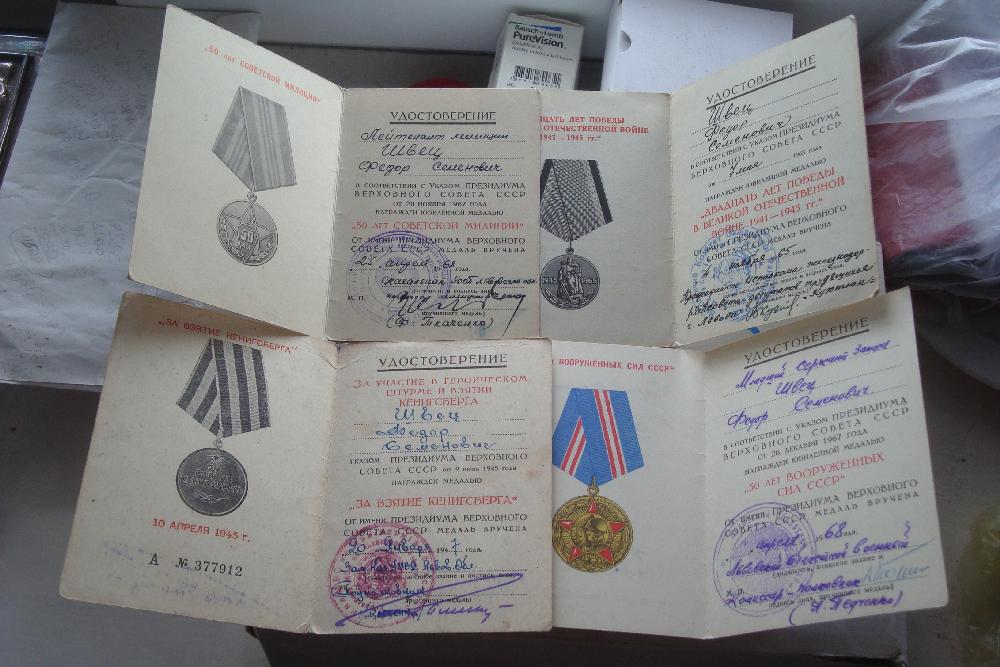 Bausch & Lomb
PureVision
„50 лет СОВЕТСКОЙ МИЛИЦИИ“
УДОСТОВЕРЕНИЕ
Лейтенант милиции
Швец
Федор Семенович
В СООТВЕТСТВИИ С УКАЗОМ ПРЕЗИДИУМА
ВЕРХОВНОГО СОВЕТА СССР
ОТ 20 НОЯБРЯ 1967 ГОДА
НАГРАЖДЕН ЮБИЛЕЙНОЙ МЕДАЛЬЮ
"50 ЛЕТ СОВЕТСКОЙ МИЛИЦИИ"
ОТ ИМЕНИ ПРЕЗИДИУМА ВЕРХОВНОГО
СОВЕТА СССР МЕДАЛЬ ВРУЧЕНА
апреля 1968 года.
М. П.
(Ф. Ткаченко)
ДЦАТЬ ЛЕТ ПОБЕДЫ
ОТЕЧЕСТВЕННОЙ ВОЙНЕ
1941—1945 гг."
1945 1965
УДОСТОВЕРЕНИЕ
Швец
Федор
Семенович
В СООТВЕТСТВИИ С УКАЗОМ ПРЕЗИДИУМА
ВЕРХОВНОГО СОВЕТА СССР
от 7 мая 1965 года
НАГРАЖДЕН ЮБИЛЕЙНОЙ МЕДАЛЬЮ
"ДВАДЦАТЬ ЛЕТ ПОБЕДЫ
В ВЕЛИКОЙ ОТЕЧЕСТВЕННОЙ
ВОЙНЕ 1941—1945 гг."
ОТ ИМЕНИ ПРЕЗИДИУМА ВЕРХОВНОГО
СОВЕТА СССР МЕДАЛЬ ВРУЧЕНА
65 г.
г. Львова
„ЗА ВЗЯТИЕ КЕНИГСБЕРГА“
10 АПРЕЛЯ 1945 г.
А № 377912
УДОСТОВЕРЕНИЕ
ЗА УЧАСТИЕ В ГЕРОИЧЕСКОМ
ШТУРМЕ И ВЗЯТИИ
КЕНИГСБЕРГА
Швец
Федор
Семенович
УКАЗОМ ПРЕЗИДИУМА ВЕРХОВНОГО
СОВЕТА СССР от 9 июня 1945 года
НАГРАЖДЕН МЕДАЛЬЮ
„ЗА ВЗЯТИЕ КЕНИГСБЕРГА“
ОТ ИМЕНИ ПРЕЗИДИУМА ВЕРХОВНОГО
СОВЕТА СССР МЕДАЛЬ ВРУЧЕНА
20 Января 1947 года.
ВООРУЖЕННЫХ СИЛ СССР"
УДОСТОВЕРЕНИЕ
Младший Сержант Запаса
Швец
Федор Семенович
В СООТВЕТСТВИИ С УКАЗОМ ПРЕЗИДИУМА
ВЕРХОВНОГО СОВЕТА СССР
ОТ 26 ДЕКАБРЯ 1967 ГОДА
НАГРАЖДЕН ЮБИЛЕЙНОЙ МЕДАЛЬЮ
"50 ЛЕТ ВООРУЖЕННЫХ
СИЛ СССР"
ОТ ИМЕНИ ПРЕЗИДИУМА ВЕРХОВНОГО
СОВЕТА СССР МЕДАЛЬ ВРУЧЕНА
апреля 1968 года
Военный
Комиссар-полковник